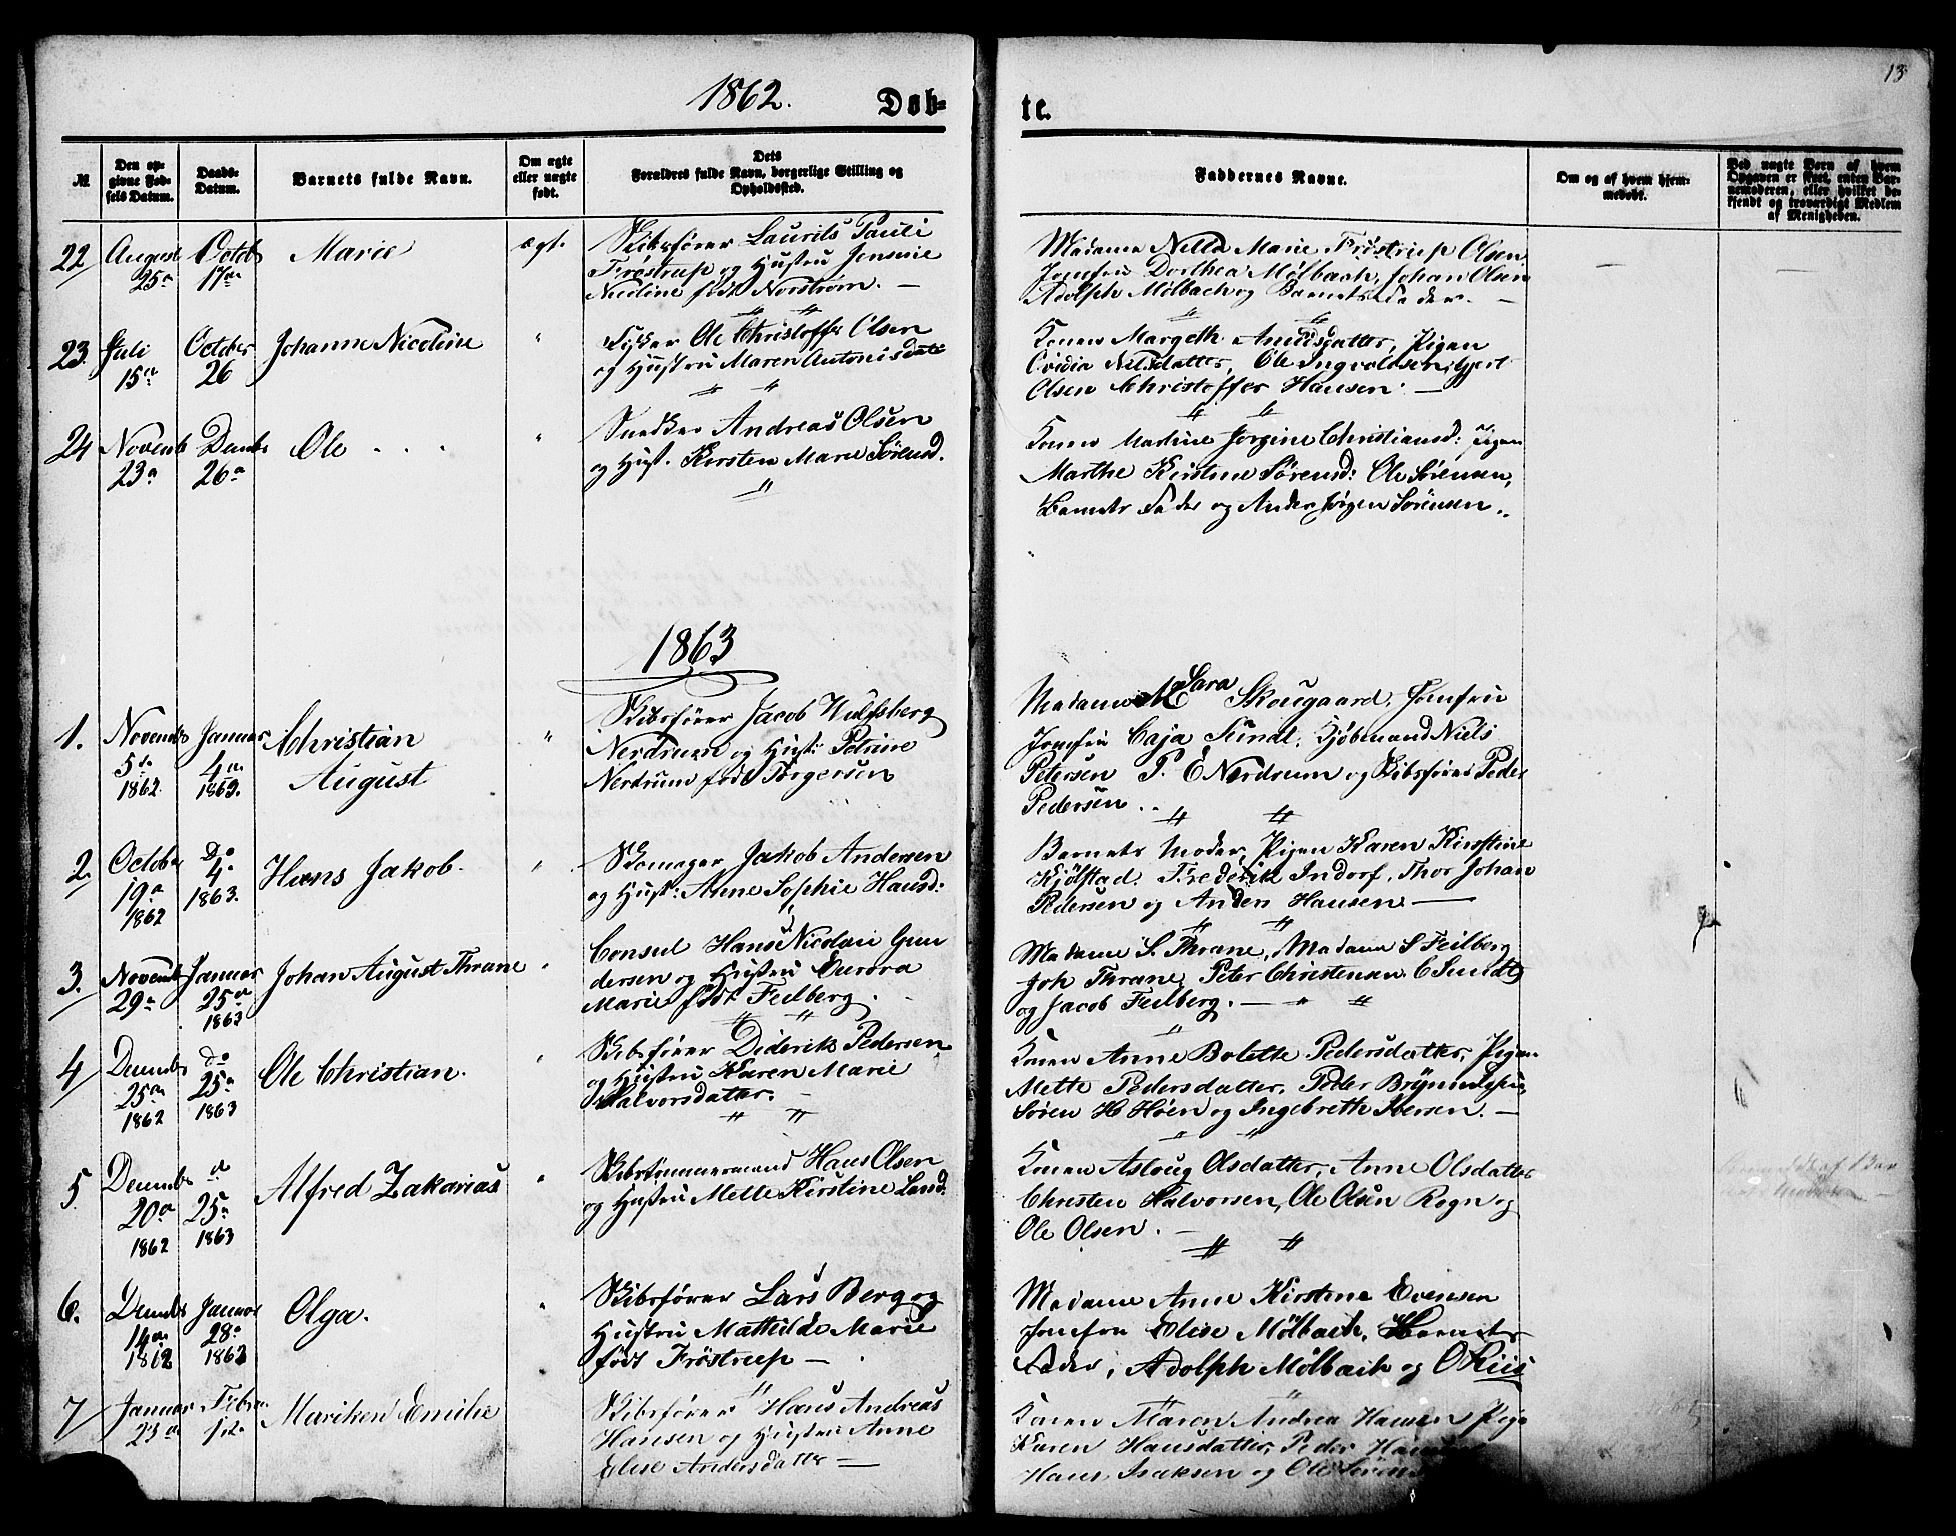 13
1862. Døb-
te.
№
Den op-
givne Fød-
sels Datum.
Daabs-
Datum.
Barnets fulde Navn.
Om ægte
eller uægte
født.
Dets
Forældres fulde Navn, borgerlige Stilling og
Opholdssted.
Faddernes Navne.
Om og af hvem hjem-
medøbt.
Ved uægte Børn af hvem
Opgaven er skeet, enten Bar-
nemoderen, eller hvilket be-
kjendt og troværdigt Medlem
af Menigheden.
22 August 25de Octob 17de Marie ægt.
Skibsfører Laurits Pauli
Frøstrup og Hustru Jensine
Nicoline født Norstrøm. —
Madame Nella Marie Frøstrup Olsen
Jomfru Dorthea Mølbach, Johan Olsen
Adolph Mølbach og Barnets Fader. —
23. Juli 15de October 26 Johanne Nicoline "
Fisker Ole Christoffer Olsen
og Hustru Maren Antonisdatt
Konen Margeth Amdsdatter, Pigen
Ovidia Nilsdatter, Ole Ingvoldsen, Gjert
Olsen Christoffer Hansen. —
24 Novemb 23de Decmbr 26de Ole "
Snedker Andreas Olsen
og Hust. Kirsten Marie Sørensd.
Konen Martine Jorgine Christiansd: Pigen
Marthe Kirstine Sørensd: Ole Sørensen,
Barnets Fader og Anders Jørgen Sørensen.
1863
1. Novembr 5te 1862. Januar 4de 1863. Christian August "
Skibsfører Jacob Wulfsberg
Nerdrum og Hust: Petrine
Nerdrum født Torgersen
Madame M Sara Skougaard, Jomfru
Jomfru Caja Sundt, Kjøbmand Niels
Petersen P. E Nerdrum og Skibsfører Peder
Pedersen.
2. October 19de 1862 Do 4de 1863. Hans Jakob. "
Skomager Jakob Andersen
og Hust: Anne Sophie Hansd:
Barnets Moder, Pigen Karen Kirstine
Kjølstad. Frederik Indorf, Thor Johan
Pedersen og Anders Hansen —
3. Novemb 29de Januar 25de 1863 Johan August Thrane "
Consul Hans Nicolai Gun
dersen og Hustru Aurora
Marie født Feilberg.
Madame S. Thrane, Madame S Feilberg
Joh Thrane, Peter Christensen C Sundt
og Jacob Feilberg. —
4 Decembr 25de 1862 do 25de 1863 Ole Christian. "
Skibsfører Diderik Pedersen
og Hustru Karen Marie
Halvorsdatter. —
Konen Anne Bolette Pedersdatter, Pigen
Mette Pedersdatter, Peder
Søren H Høen og Ingebreth Iversen. —
5 Decembr 20de 1862 d 25de 1863 Alfred Zakarias "
Skibstømmermand Hans Olsen
og Hustru Mette Kirstine Land.
Konen Asloug Olsdatter, Anne Olsdatter
Christen Halvorsen, Ole Olsen Rogn og
Ole Olsen. —
6. Decembr 14de 1862 Januar 28de 1863 Olga. "
Skibsfører Lars Berg og
Hustru Mathilde Marie
født Frøstrup —
Madame Anne Kirstine Evensen
Jomfru Elise Mølbach, Barnets
Fader, Adolph Mølbach og O Riis
7 Januar 23de Febru 1ste Mariken Emilie
Skibsfører Hans Andreas
Hansen og Hustru Anne
Elise Andersdatter —
Konen Maren Andrea Hansen Pige
Karen Hansdatter, Peder
Hans Isaksen og Ole